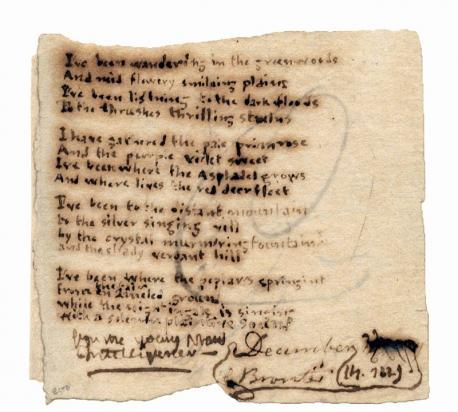 I've been wandering in the greenwoods
And mid flowery smiling plains
I've been listning to the dark floods
To the thrushes thrilling strains
I have gathered the pale primrose
And the purple violet sweet
I've been where the Asphodel grows
And where lives the red deer fleet
I've been to the distant mountain
to the silver singing rill
by the crystal murmuring fountain
and the shady verdant hill
I've been where the poplar is springing
from the fair
ground
while the is singing
With a solemn
young
December
Bronte 14. 1829